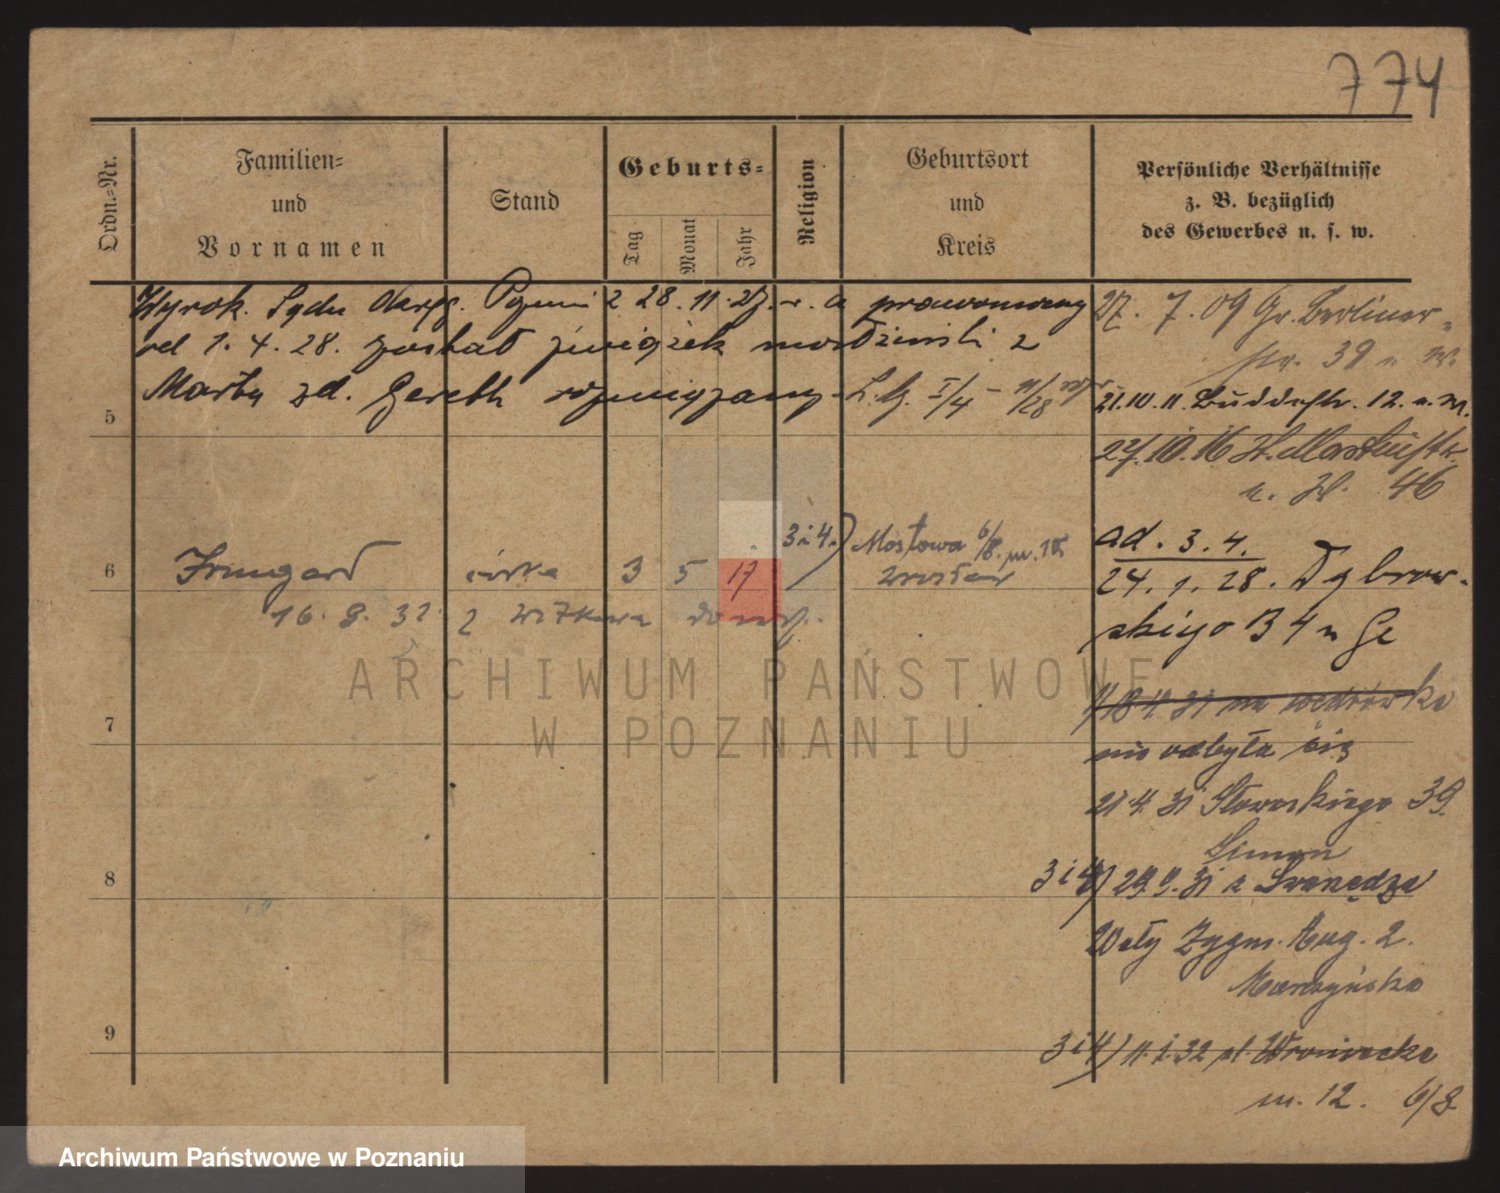 774
Ordn.-Nr.
Familien-
und
Vornamen
Stand
Geburts-
Tag
Monat
Jahr
Religion
Geburtsort
und
Kreis
Persönliche Verhältnisse
z. B. bezüglich
des Gewerbes u. s. w.
Wyrok. Sądu Okręg. z 28. 11. 27. r. a prawomocny
od 1. 4. 28. został związek małżeński z
Martą zd. Gereth rozwiązany
27. 7. 09 Gr. Berliner-
str. 39
5
21.10.11. Buddestr. 12.
27.10.16 St. Martinstr.
46
6
Irmgard córka 3 5 17
3 i 4.) Mostowa 6/8. m.
Wrocław
16. 9. 32. z Witkowa
ad. 3. 4.
24. 1. 28. Dąbrow-
skiego B 4 Ge
7
18 4 31 na wędrówkę
nie odbyła się
21 4 31 Słowackiego 39.
Simon
8
3 i 4) 29. 9. 31 z Swarzędza
Wały Zygm. Aug. 2.
9
3 i 4) 11. 1. 32 pl. Wroniecka
m. 12. 6/8
ARCHIWUM PAŃSTWOWE
W POZNANIU
Archiwum Państwowe w Poznaniu